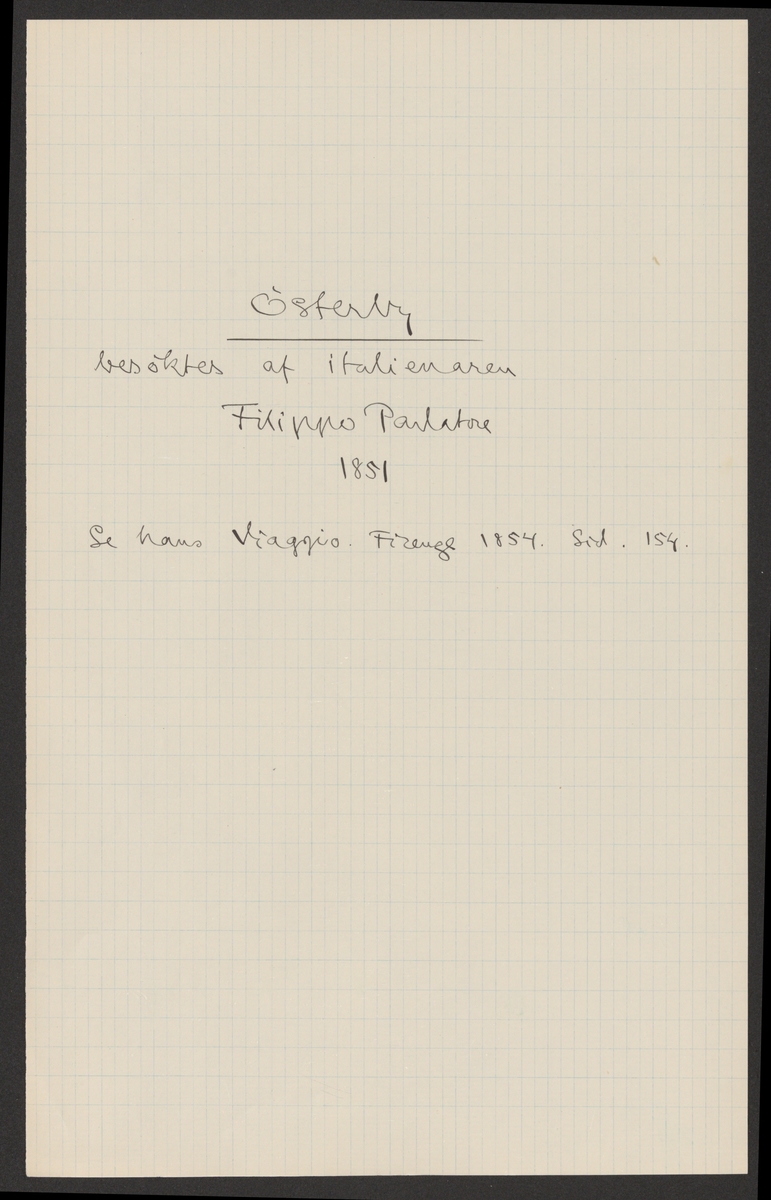 Österby
besöktes af italienaren
Filippo Parlatore
1851
Se hans Viaggio. Firenze 1854. Sid. 154.